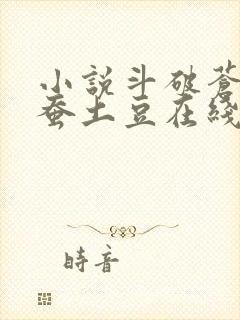 小說斗破蒼
蚕土豆在綫
時音